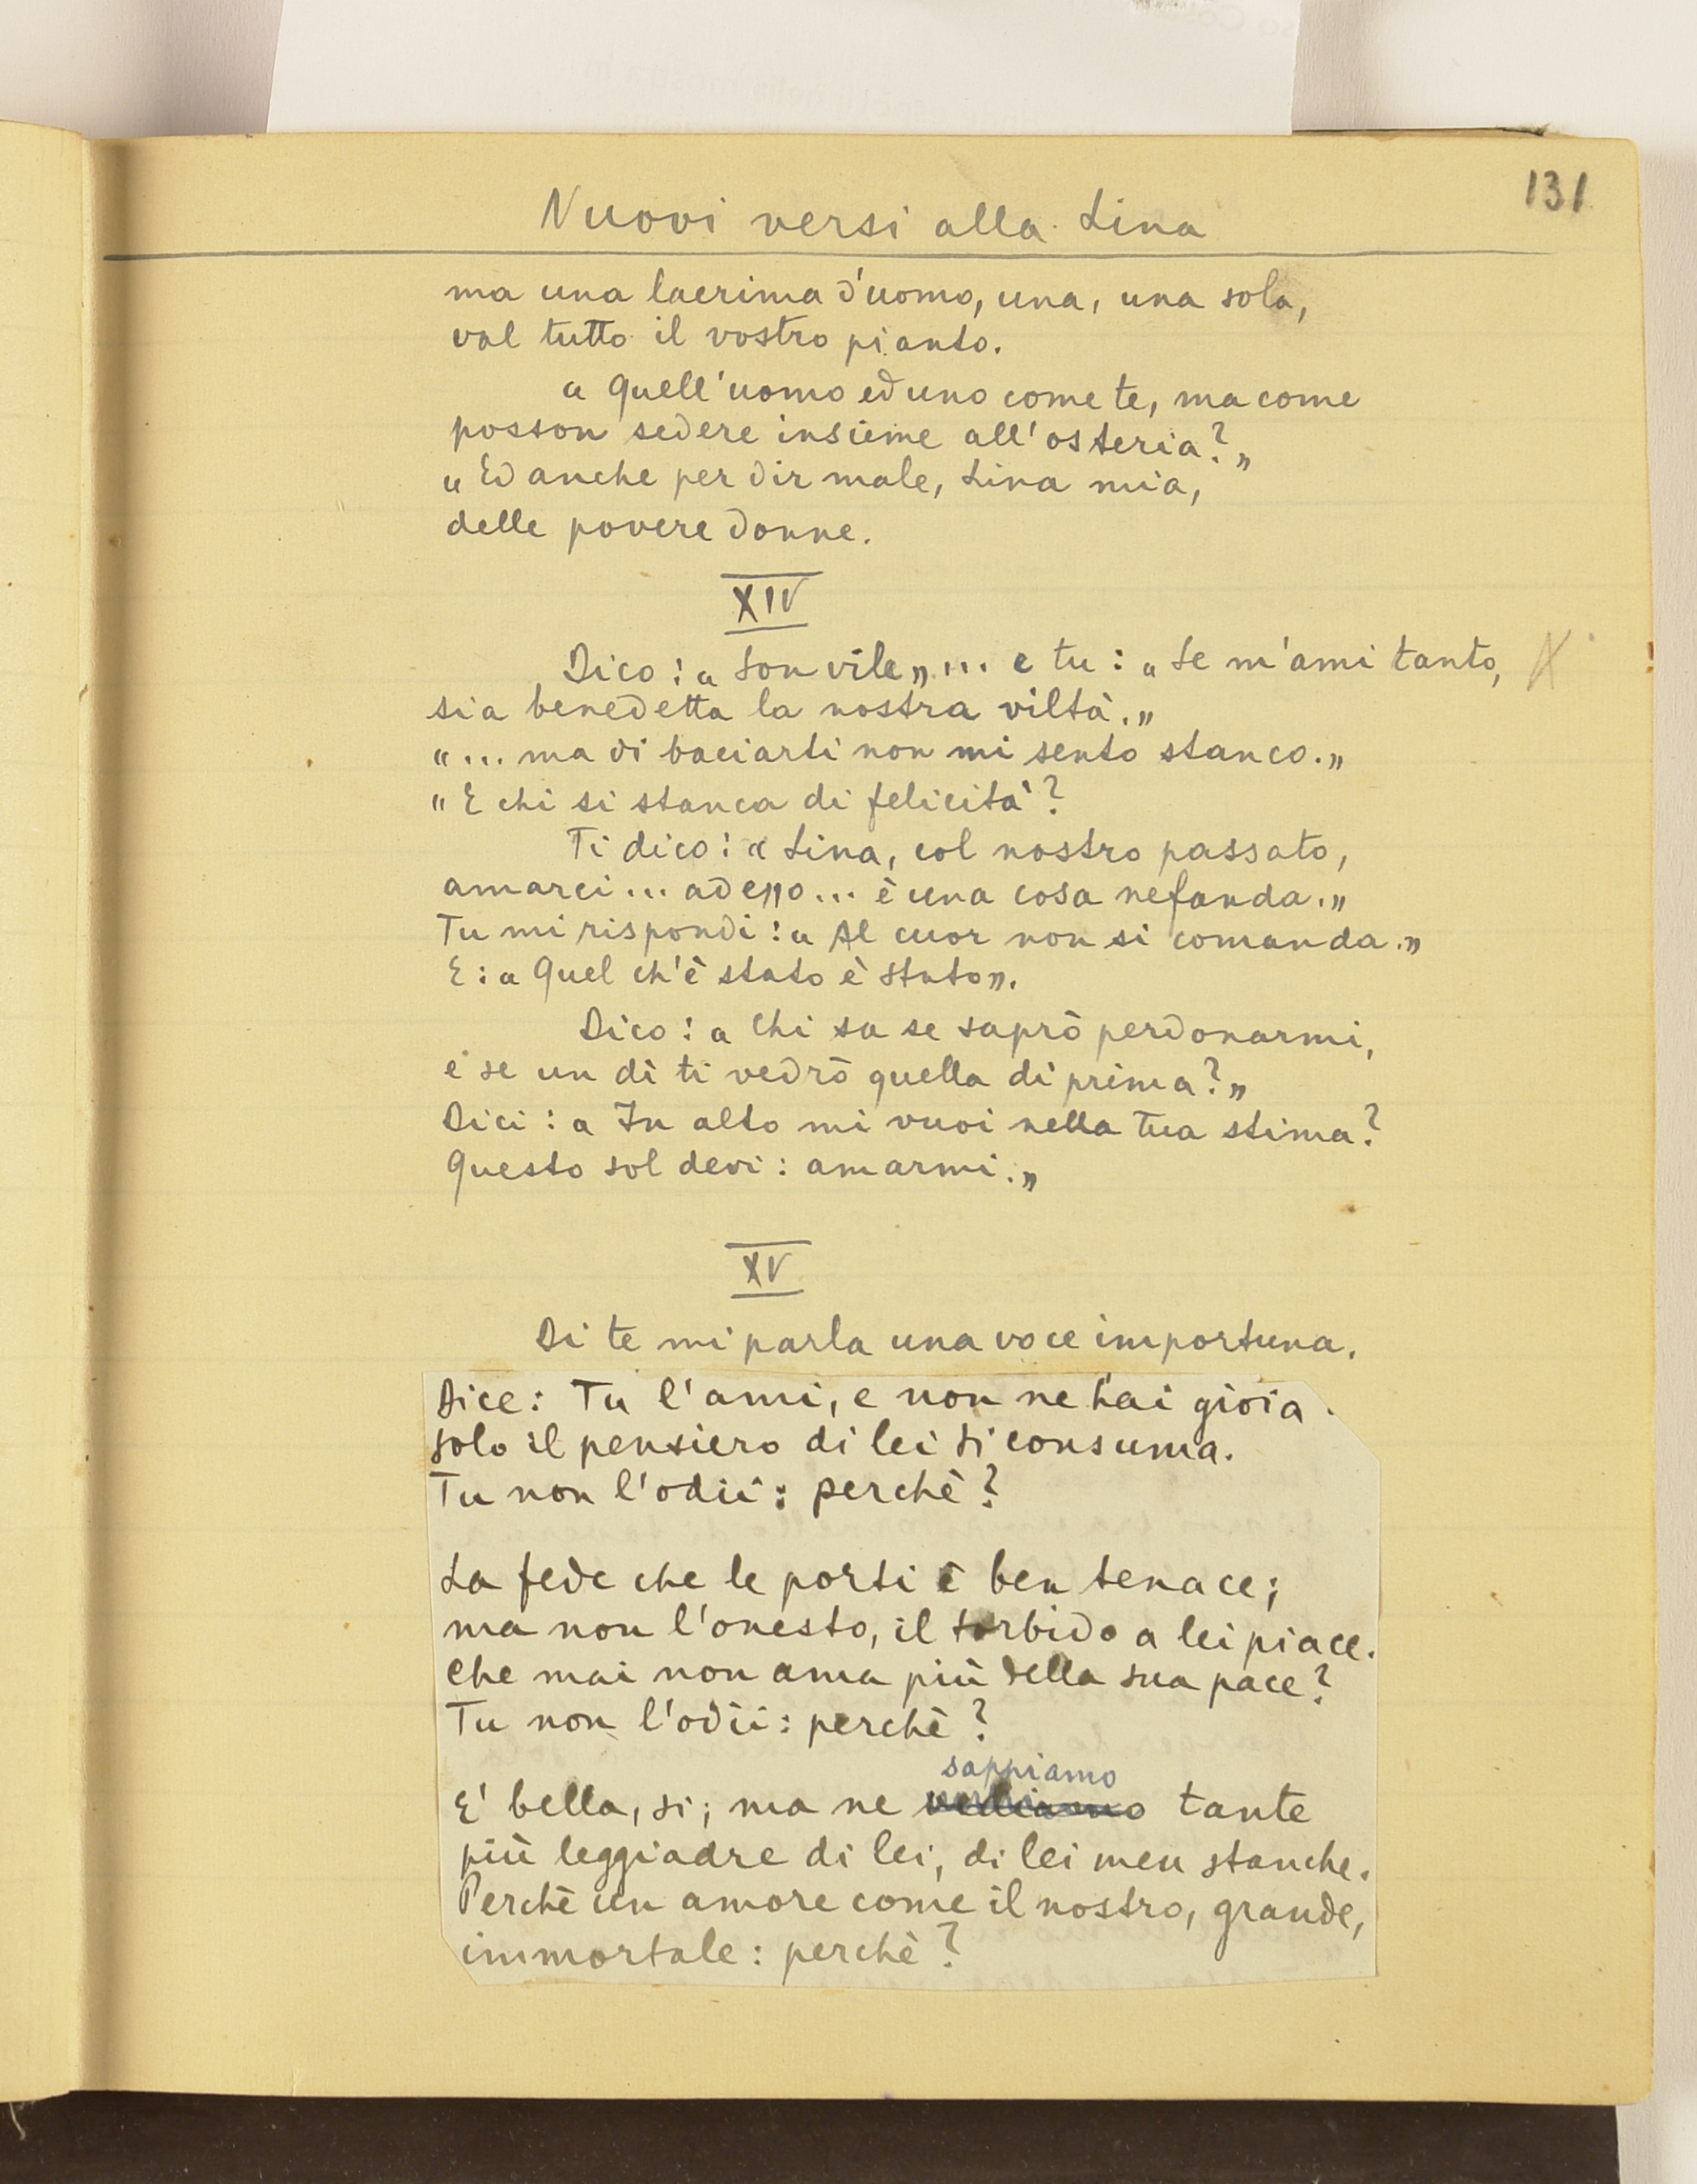 131
Nuovi versi alla Lina
ma una lacrima d'uomo, una, una sola,
val tutto il vostro pianto.
« Quell'uomo ed uno come te, ma come
posson sedere insieme all'osteria?»
« Ed anche per dir male, Lina mia,
delle povere donne.
XIV
Dico: « Son vile»... e tu: « Se m'ami tanto,
sia benedetta la nostra viltà.»
«... ma di baciarti non mi sento stanco.»
« E chi si stanca di felicità?
Ti dico: « Lina, col nostro passato,
amarci... adesso... è una cosa nefanda.»
Tu mi rispondi: « Al cuor non si comanda.»
E: « Quel ch'è stato è stato».
Dico: « Chi sa se saprò perdonarmi,
e se un dì ti vedrò quella di prima?»
Dici: « In alto mi vuoi nella tua stima?
Questo sol devi: amarmi.»
XV
Di te mi parla una voce importuna.
Dice: Tu l'ami, e non ne hai gioia.
Solo il pensiero di lei ti consuma.
Tu non l'odii: perchè?
La fede che le porti è ben tenace;
ma non l'onesto, il torbido a lei piace.
Che mai non ama più della sua pace?
Tu non l'odii: perchè?
sappiamo
E' bella, sì; ma ne vediamo tante
più leggiadre di lei, di lei men stanche.
Perchè un amore come il nostro, grande,
immortale: perchè?